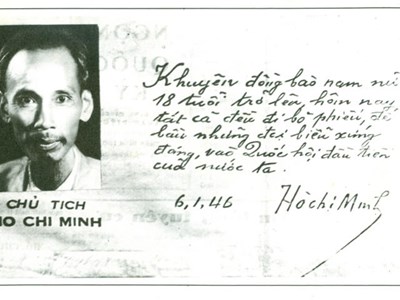 Khuyên đồng bào nam nữ
18 tuổi trở lên, hôm nay
tất cả đều đi bỏ phiếu, để
bầu những đại biểu xứng
đáng, vào Quốc hội đầu tiên
của nước ta.
6.1.46 Hồ Chí Minh
CHỦ TỊCH
HO CHI MINH